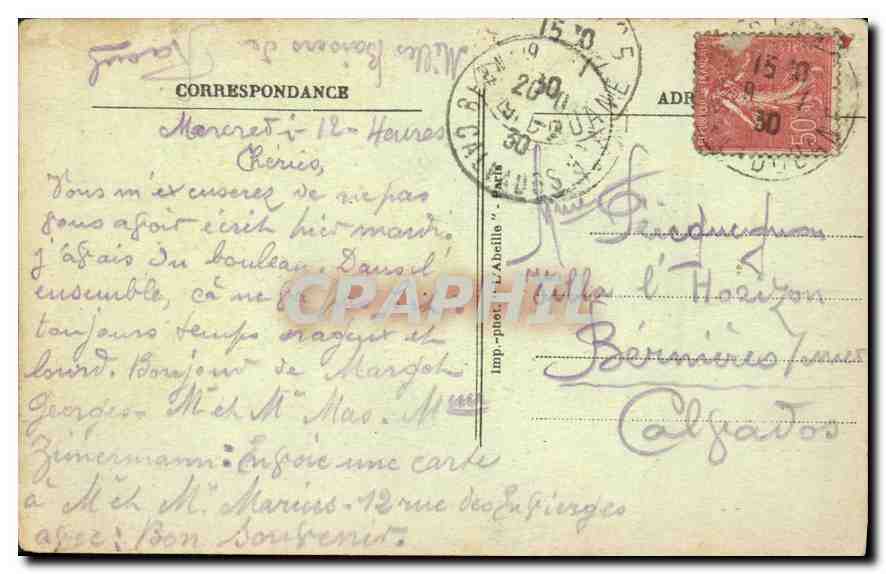 Milles Baisers de
Raoul
CORRESPONDANCE
Mercredi 12 Heures
Chéries,
Vous m'excuserez de ne pas
vous avoir écrit hier mardi.
j'avais du bouleau. Dans l'
ensemble, çà ne va
toujours temps orageux et
lourd. Bonjour de Margot
Georges - Mr et Me Mas. Mme
Zimermann. Envoie une carte
à Mr et Me Marius - 12 rue des Envierges
avec : Bon Souvenir.
Imp.-phot. "L'Abeille" - Paris
ADR
Mme
Villa l'Horizon
Bernières s/mer
Calvados
CALVADOS
DOUANE
15 30
20
30
15 30
9 7
30
50c
CPAPHIL